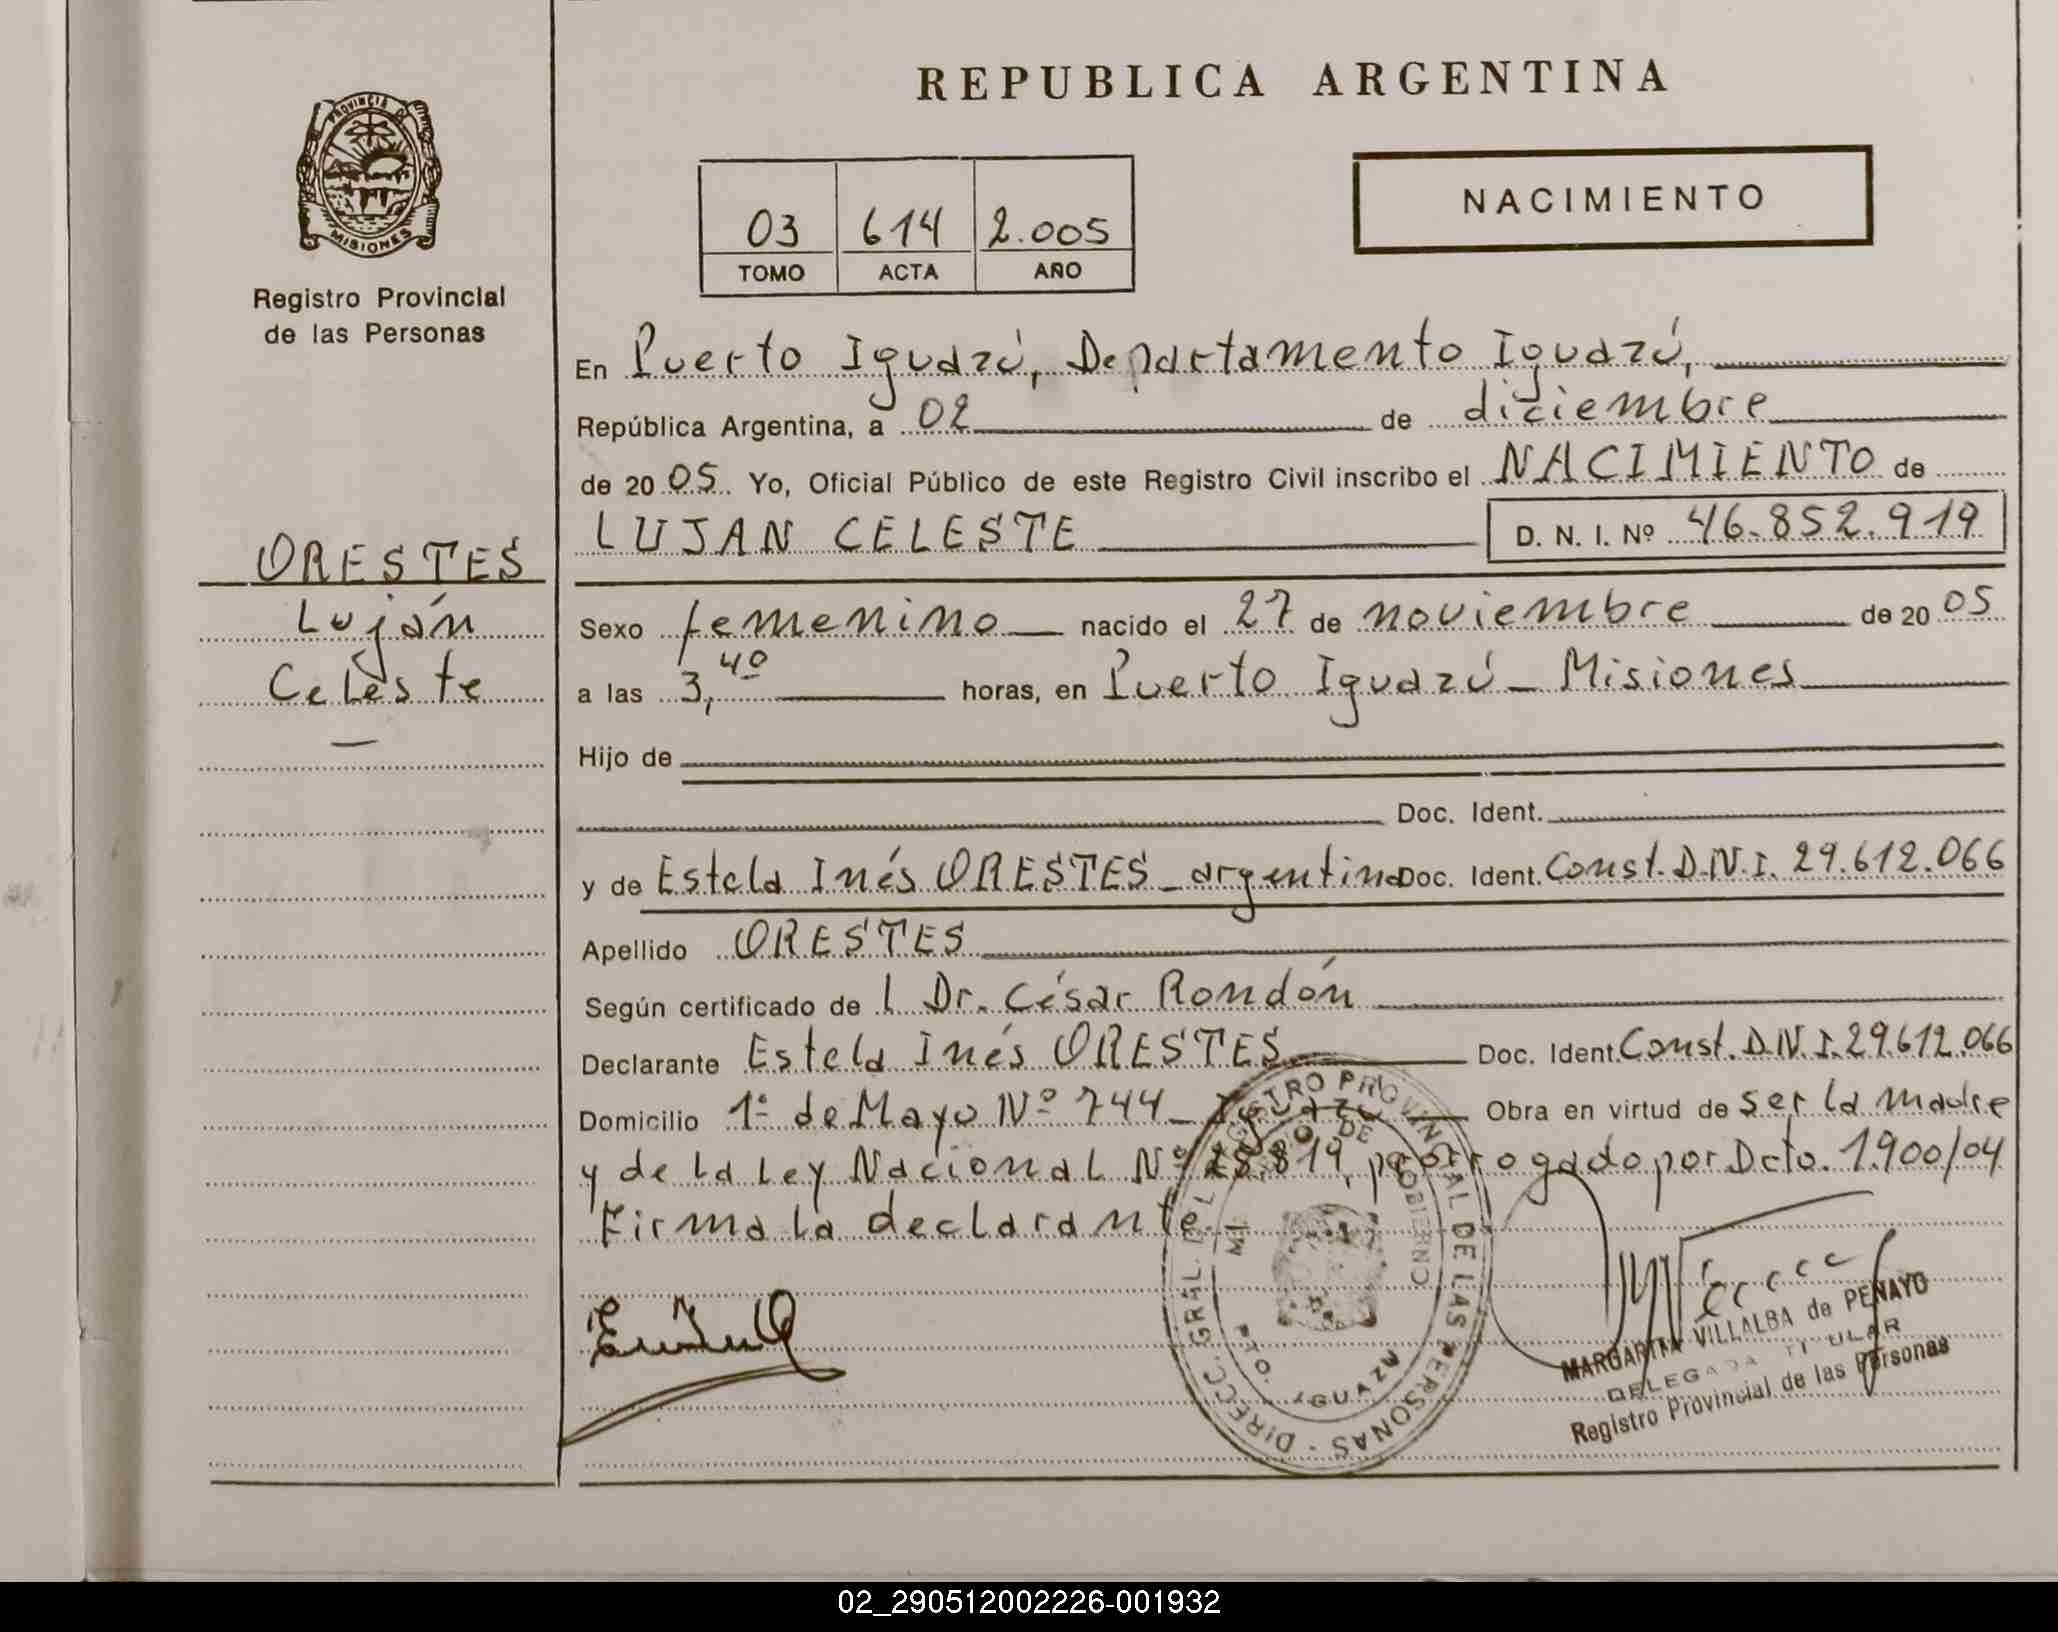 REPUBLICA ARGENTINA
PROVINCIA DE
MISIONES
Registro Provincial
de las Personas
03 614 2.005
TOMO ACTA AÑO
NACIMIENTO
En Puerto Iguazú, Departamento Iguazú,
República Argentina, a 02 de diciembre
de 2005 Yo, Oficial Público de este Registro Civil inscribo el NACIMIENTO de
LUJAN CELESTE D. N. I. Nº 46.852.919
ORESTES
Luján
Celeste
Sexo femenino nacido el 27 de noviembre de 2005
a las 3,40 horas, en Puerto Iguazú - Misiones
Hijo de
Doc. Ident.
y de Estela Inés ORESTES - argentina Doc. Ident. Const. D.N.I. 29.612.066
Apellido ORESTES
Según certificado de l Dr. César Rondón
Declarante Estela Inés ORESTES Doc. Ident. Const. D.N.I. 29.612.066
Domicilio 1º de Mayo Nº 744 - Iguazú Obra en virtud de ser la madre
y de la Ley Nacional Nº 25.819, prorrogado por Dcto. 1.900/04
Firma la declarante
DIRECC. GRAL. DEL REGISTRO PROVINCIAL DE LAS PERSONAS
DE GOBIERNO
PTO. IGUAZU
MARGARITA VILLALBA de PENAYO
DELEGADA TITULAR
Registro Provincial de las Personas
02_290512002226-001932